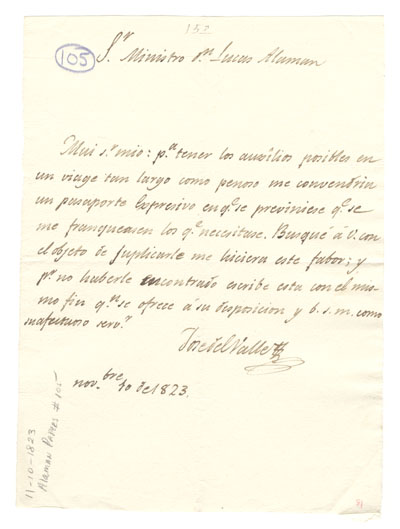 152
105
S.r Ministro d.n Lucas Alaman
Mui s.r mio: p.a tener los auxilios posibles en
un viage tan largo como penoso me convendria
un pasaporte expresivo en q.e se previniese q.e se
me franqueasen los q.e necesitase. Busqué á V. con
el objeto de suplicarle me hiciera este fabor; y
p.r no haberle encontrado escribe esta con el mis-
mo fin q.n se ofrece á su disposicion y b. s. m. como
su afectuoso serv.r
José del Valle
nov.bre 10 de 1823.
11-10-1823
Alaman Papers #105